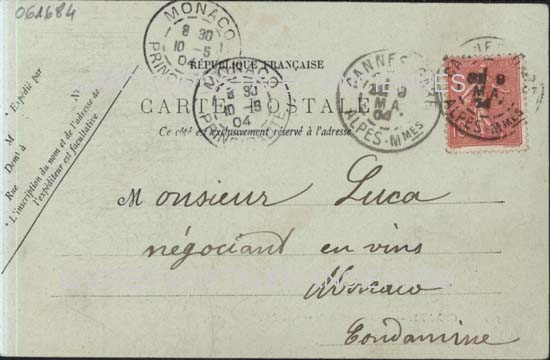 061684
MONACO
8 30
10 - 5
04
PRINC
MONACO
8 30
10 - 5
04
PRINC
RÉPUBLIQUE FRANÇAISE
CARTE POSTALE
Ce côté est exclusivement réservé à l'adresse
CANNES
9
MAI
04
ALPES-Mmes
CANNES
9
MA
04
ALPES-Mmes
• Expédié par
M
Demt à
Rue
N°
• L'inscription du nom et de l'adresse de
l'expéditeur est facultative •
Monsieur Luca
négociant en vins
Monaco
Condamine